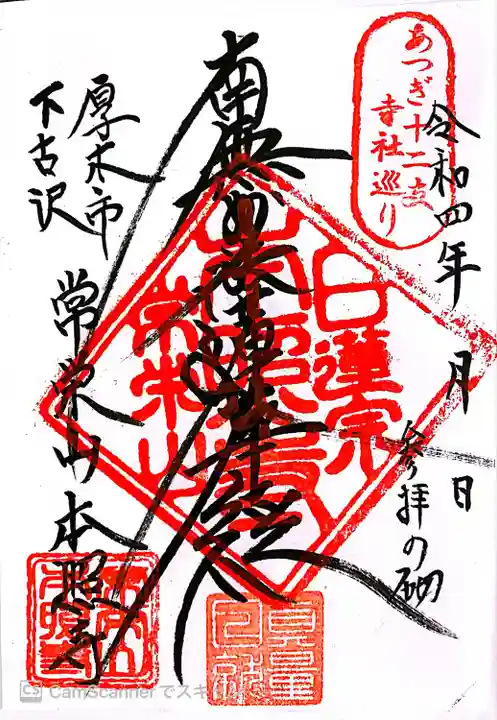 あつぎ十二支
寺社巡り
令和四年 月 日
参拝の砌
南無妙法蓮華経
日蓮宗
常栄山
厚木市
下古沢
常栄山本照寺
CS CamScannerでスキ